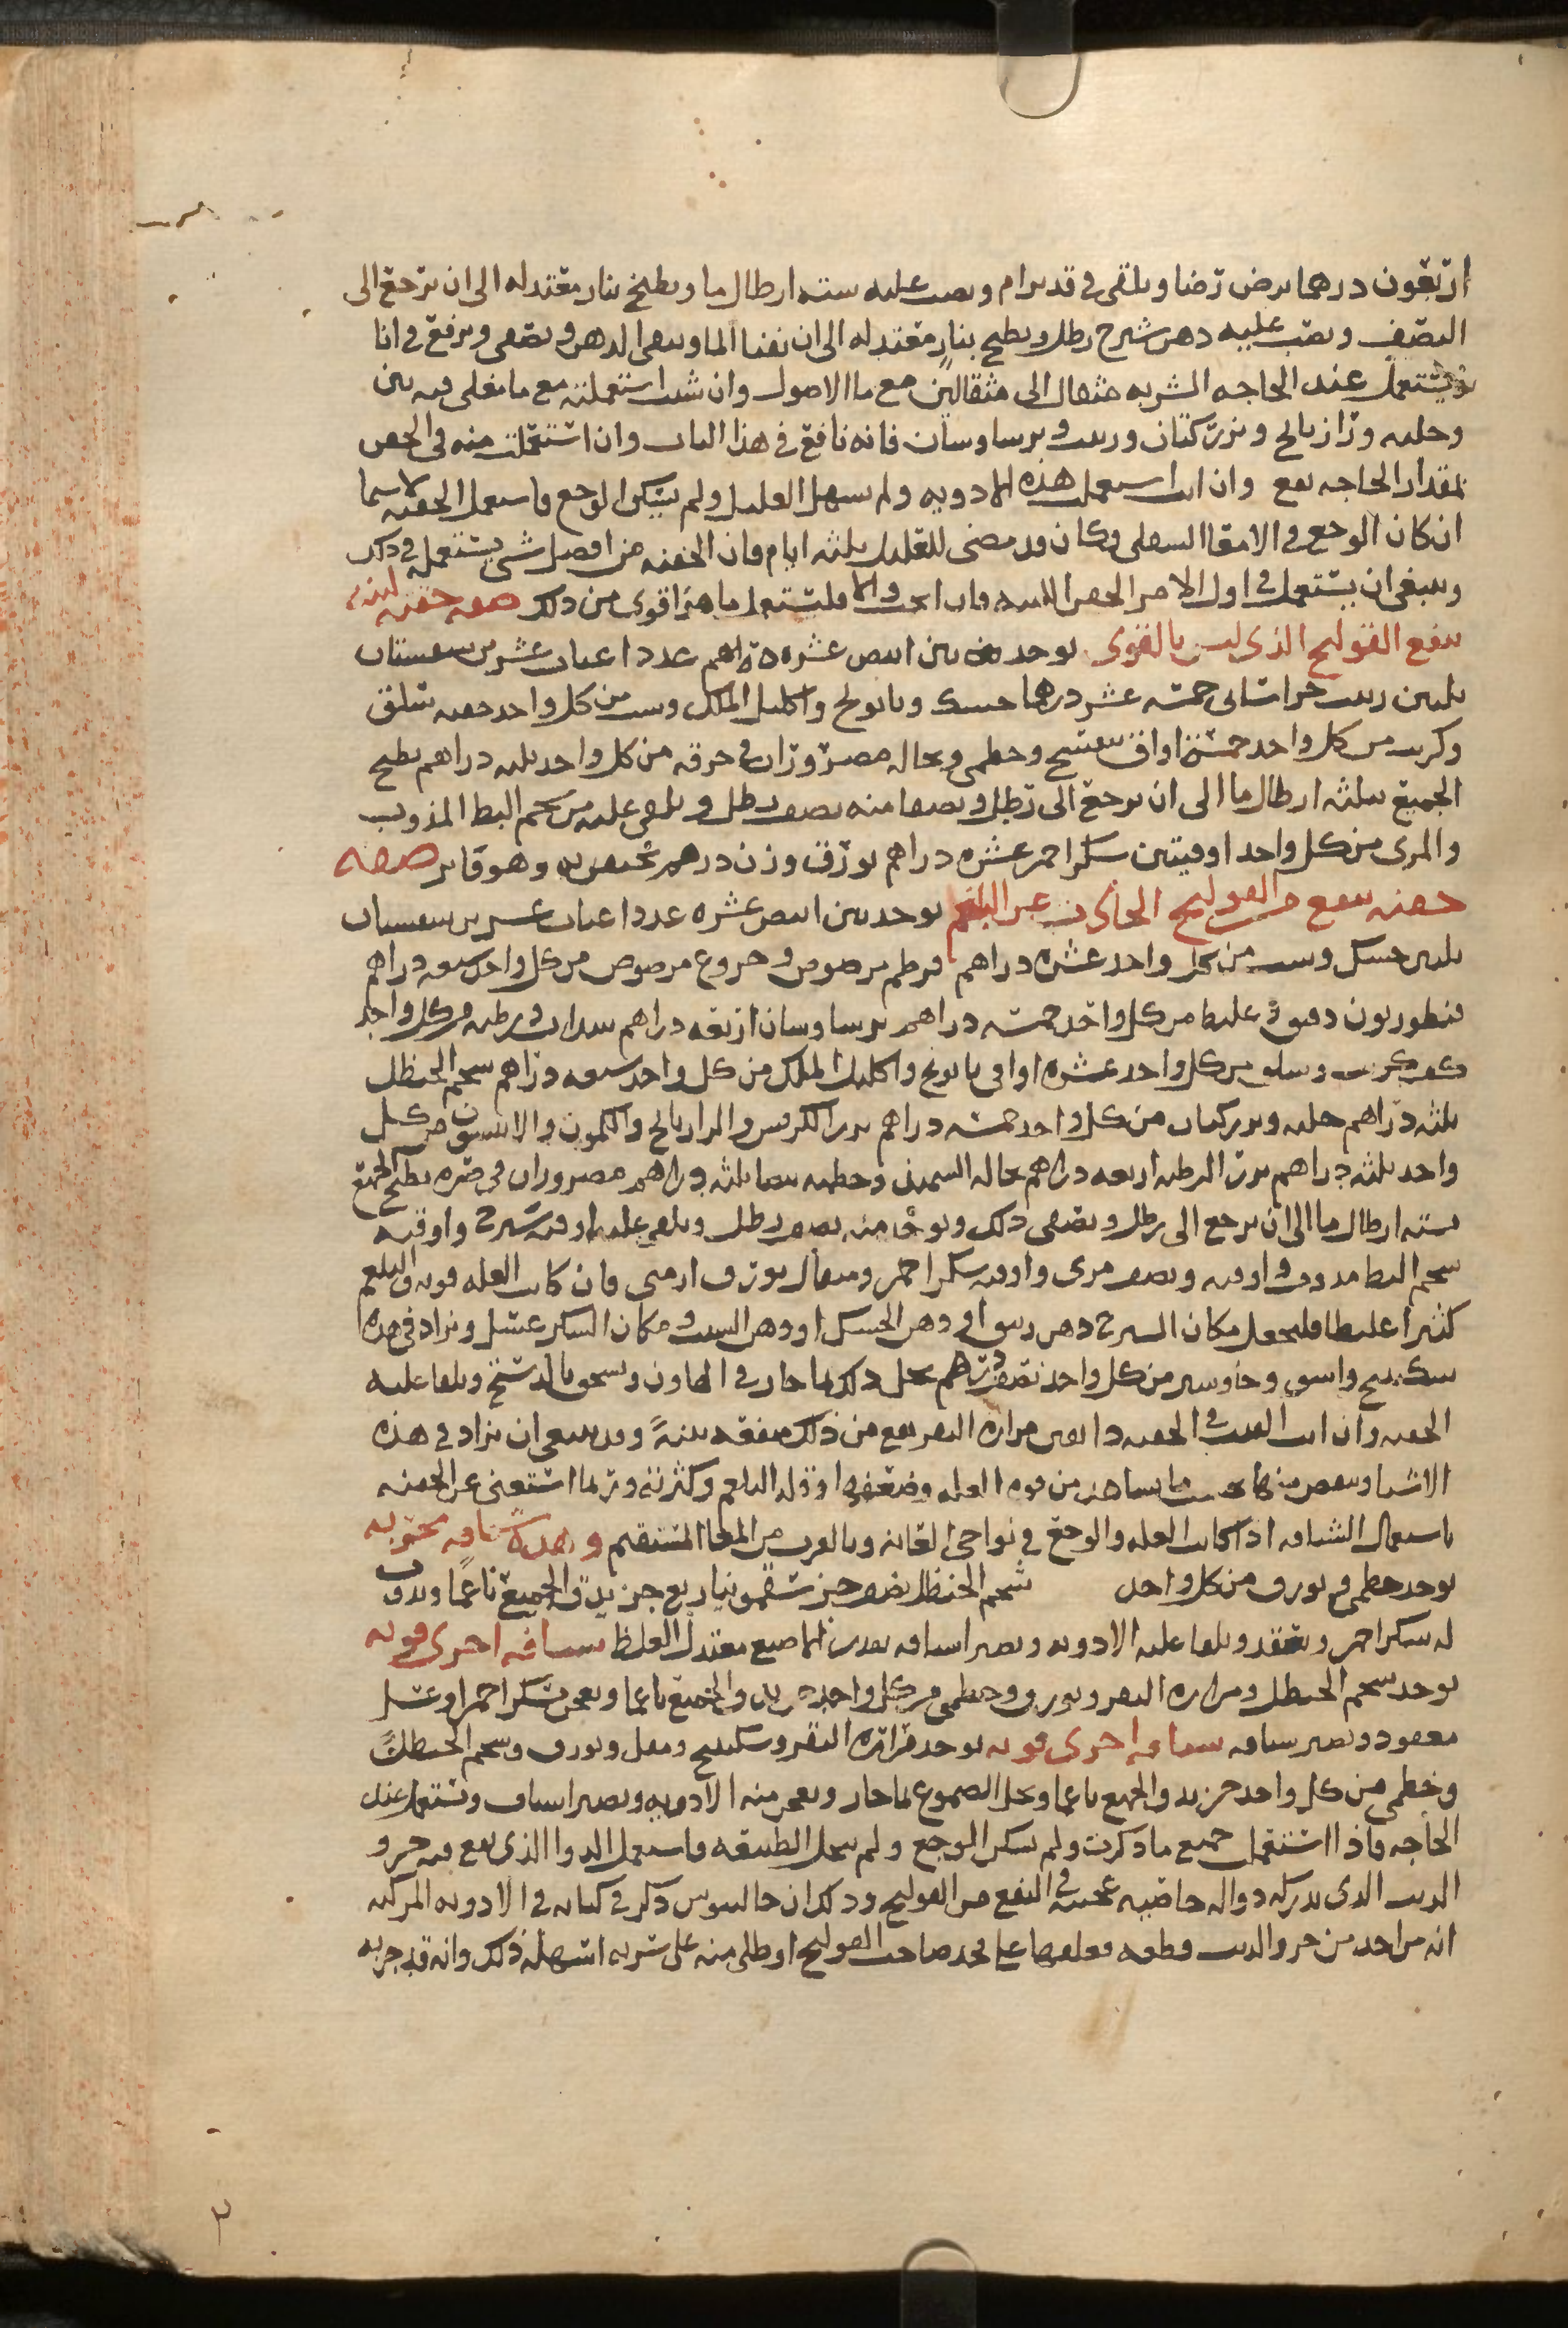 اربعون درهما يرض رضا ويلقى في قدر برام ويصب عليه سته ارطال ما ويطبخ بنار معتدله الى ان يرجع الى
النصف ويصب عليه دهن شيرج رطل ويطبخ بنار معتدله الى ان يفنا الما ويبقى الدهن ويصفى ويرفع في انا
ويستعمل عند الحاجه الشربه مثقال الى مثقالين مع ما الاصول وان شئت استعملته مع ما يغلى فيه تين
وحلبه ورازيانج وبزر كتان وزبيب وبرساوسان فانه نافع في هذا الباب وان استعملت منه في الحقن
بمقدار الحاجه نفع وان انت استعملت هذه الادويه ولم يسهل العليل ولم يسكن الوجع فاستعمل الحقنه لا سيما
ان كان الوجع في الامعا السفلى وكان قد مضى للعليل ثلثه ايام فان الحقنه من افضل شي يستعمل في ذلك
وينبغي ان يستعمل في اول الامر الحقن اللينه فان انجحت والا فليستعمل ما هو اقوى من ذلك صفه حقنه لينه
تنفع القولنج الذي ليس بالقوي يوخذ تين ابيض عشره عددا عناب عشرين سبستان
ثلثين زبيب خراساني خمسه عشر درهما حسك وبابونج واكليل الملك وشبت من كل واحد حفنه سلق
وكرنب من كل واحد خمسه اواق بنفسج وخطمي ونخاله مصرورات في خرقه من كل واحد ثلثه دراهم يطبخ
الجميع بثلثه ارطال ما الى ان يرجع الى رطل ويصفا منه نصف رطل ويلقى عليه من شحم البط المذوب
والمري من كل واحد اوقيتين سكر احمر عشره دراهم بورق وزن درهم يحتقن به وهو فاتر صفه
حقنه تنفع من القولنج الحادث عن البلغم يوخذ تين ابيض عشره عددا عناب عشرين سبستان
ثلثين حسك وشبت من كل واحد عشره دراهم قرطم مرضوض وخروع مرضوض من كل واحد سبعه دراهم
قنطوريون دقيق وغليظ من كل واحد خمسه دراهم برساوسان اربعه دراهم سداب ورطبه من كل واحد
كف كرنب وسلق من كل واحد عشره اواقي بابونج واكليل الملك من كل واحد سبعه دراهم شحم الحنظل
ثلثه دراهم حلبه وبزر كتان من كل واحد خمسه دراهم بزر الكرفس والرازيانج والكمون والانيسون من كل
واحد ثلثه دراهم بزر الرطبه اربعه دراهم نخاله السميذ وخطميه بيضا ثلثه دراهم مصروران في صره يطبخ الجميع
بسته ارطال ما الى ان يرجع الى رطل ويصفى ذلك ويوخذ منه نصف رطل ويلقى عليه اوقيه شيرج واوقيه
شحم البط مذوب واوقيه ونصف مري واوقيه سكر احمر ومثقال بورق ارمني فان كانت العله قويه والبلغم
كثيرا غليظا فليجعل مكان الشيرج دهن زيتون او دهن الحسك او دهن الشبت ومكان السكر عسل ويزاد في هذه
سكبينج واشق وجاوشير من كل واحد نصف درهم يحل ذلك بما حار في الهاون ويسحق بالدستج ويلقا عليه
الحقنه وان انت القيت في الحقنه دانقين مراره البقر نفع من ذلك منفعه بينةً وقد ينبغي ان يزاد في هذه
الاشيا وينقص منها بحسب ما يشاهد من قوه العله وضعفها وقله البلغم وكثرته وربما استغني عن الحقنه
باستعمال الشيافه اذا كانت العله والوجع في نواحي العانه وبالقرب من المعا المستقيم وهذه شيافه مجربه
يوخذ خطمي وبورق من كل واحد شحم الحنظل نصف جز سقمونيا ربع جز يدق الجميع ناعما ويذوب
له سكر احمر ويعقد ويلقا عليه الادويه ويصير اشيافه بقدر الاصبع معتدل الغلظ شيافه اخرى قويه
يوخذ شحم الحنظل ومراره البقر وبورق وخطمي من كل واحد جز يدق الجميع ناعما ويعجن بسكر احمر او عسل
معقود ويصير شيافه شيافه اخرى قويه يوخذ مراره البقر وسكبينج ومقل وبورق وشحم الحنظل
وخطمي من كل واحد جز يدق الجميع ناعما ويحل الصموغ بما حار ويعجن منه الادويه ويصير اشياف وتستعمل عند
الحاجه فاذا استعمل جميع ما ذكرت ولم يسكن الوجع ولم تنحل الطبيعه فاستعمل الدوا الذي يقع فيه خرو
الذيب الذي يذكر له دوا له خاصيه عجيبه في النفع من القولنج وذلك ان جالينوس ذكر في كتابه في الادويه المركبه
انه من اخذ من خرو الذيب قطعه فعلقها على فخذ صاحب القولنج او طلي منه على سرته اسهله ذلك وانه قد جربه
٢